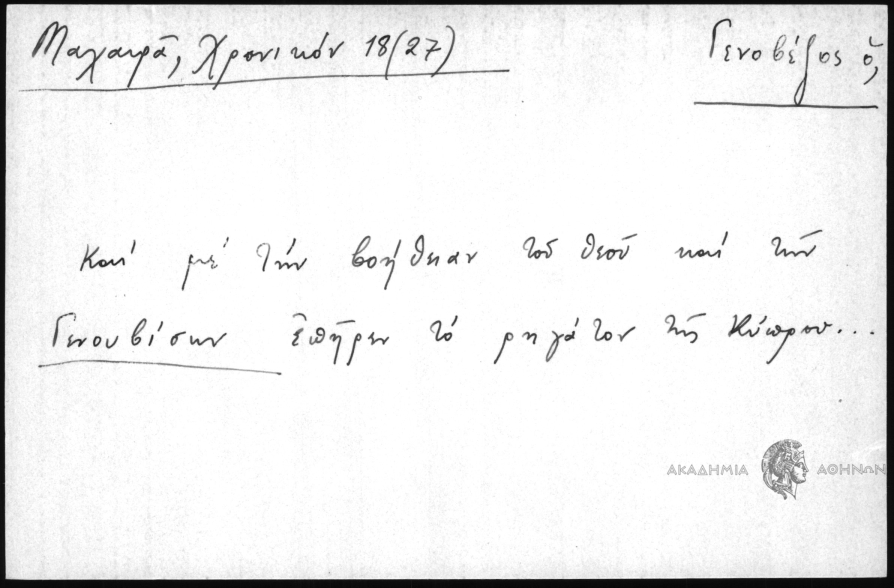 Μαχαιρᾶ, Χρονικόν 18(27)
Γενοβέζος ὁ,
Καί μέ τήν βοήθειαν τοῦ θεοῦ καί τῆν
Γενουβίσων ἐπῆρεν τό ρηγάτον τῆς Κύπρου...
ΑΚΑΔΗΜΙΑ ΑΘΗΝΩΝ